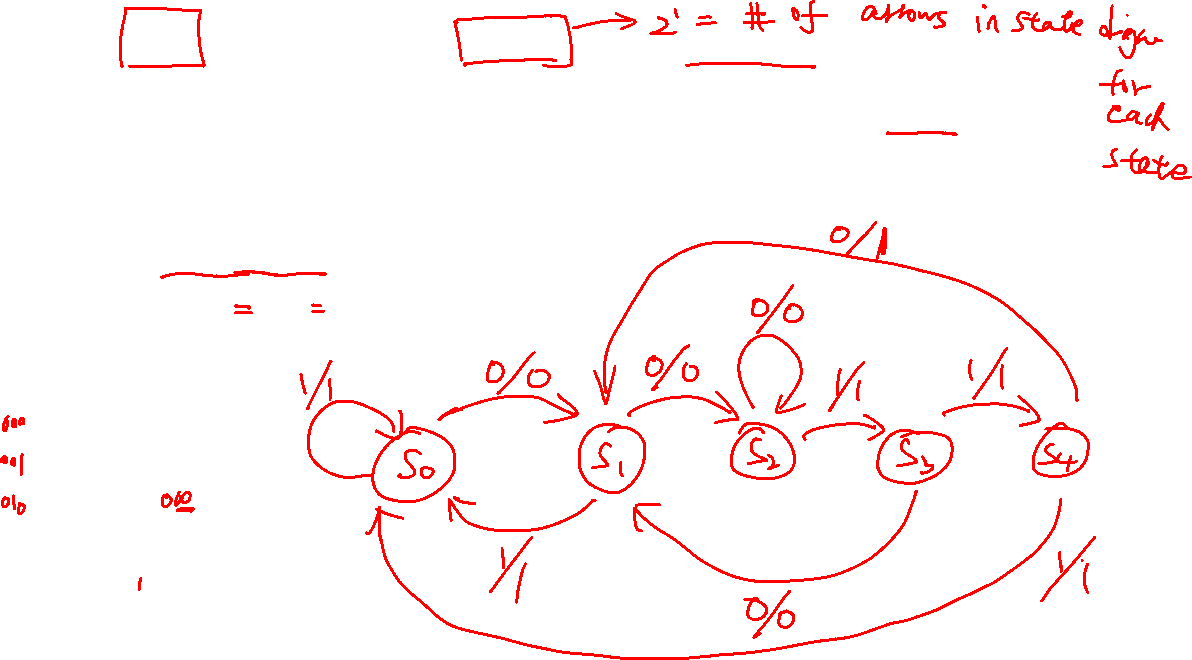 2¹ = # of arrows in state diagm
for
each
state
0/1
0/0
1/1
0/0
0/0
1/1
1/1
000
001
010
010
S0
S1
S2
S3
S4
1/1
0/0
1/1